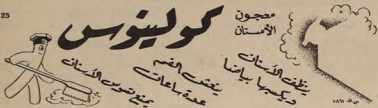 23
معجون الأسنان
كولينوس
ينظف الأسنان
ويكسبها بياضا
ينعش الفم
عدة ساعات
يمنع تسوس الأسنان